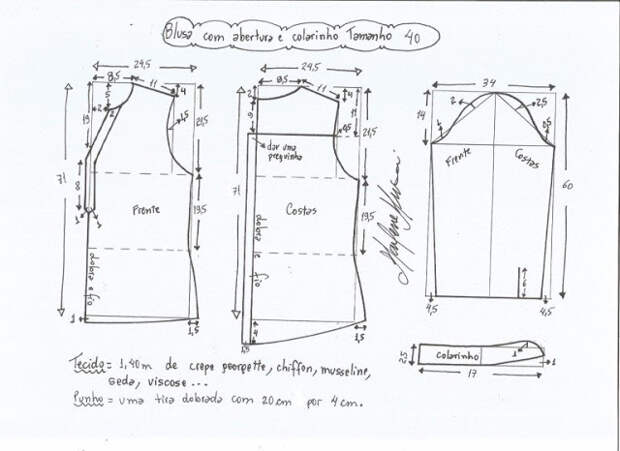 Blusa com abertura e colarinho Tamanho 40
24,5
8,5
11
4
5
2
2
19
1,5
21,5
71
8
1
Frente
19,5
dobra e fio
1
1,5
24,5
8,5
11
2
4
9
11
0,5
21,5
dar uma preguinha
71
Costas
19,5
dobra e fio
1,5
4
1,5
34
14
2
2,5
1
0,5
Frente
Costas
60
6
4,5
4,5
Marlene Mukai
colarinho
2,5
1
1
17
Tecido = 1,40m de crepe georgette, chiffon, musseline,
seda, viscose ...
Punho = uma tira dobrada com 20cm por 4cm.